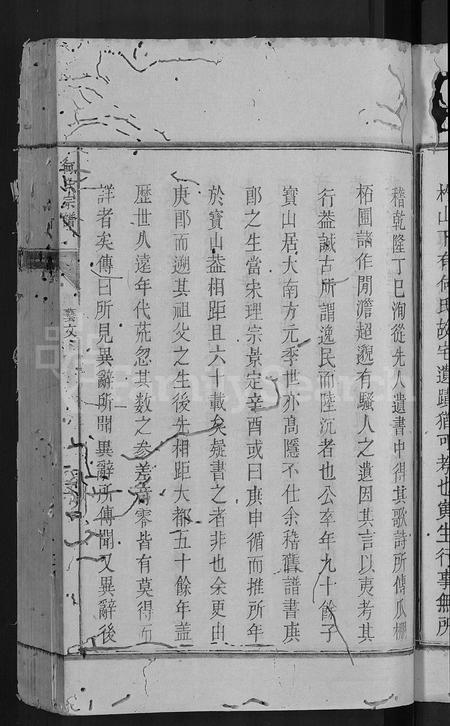 杉山下有何氏故宅遺蹟猶可考也寅生行事無所
稽乾隆丁巳洵從先人遺書中得其歌詩所傳瓜棚
栢圃諸作閒澹超邈有騷人之遺因其言以夷考其
行葢誠古所謂逸民而陸沉者也公卒年九十餘子
寳山居大南方元季世亦高隱不仕余稽舊譜書庚
郎之生當宋理宗景定辛酉或曰庚申循而推所年
於寳山葢相距且六十載矣疑書之者非也余更由
庚郎而遡其祖父之生後先相距大都五十餘年葢
歴世久遠年代茫忽其數之参差竒零皆有莫得而
詳者矣傳曰所見異辭所聞異辭所傳聞又異辭後
何氏宗譜
藝文
FamilySearch